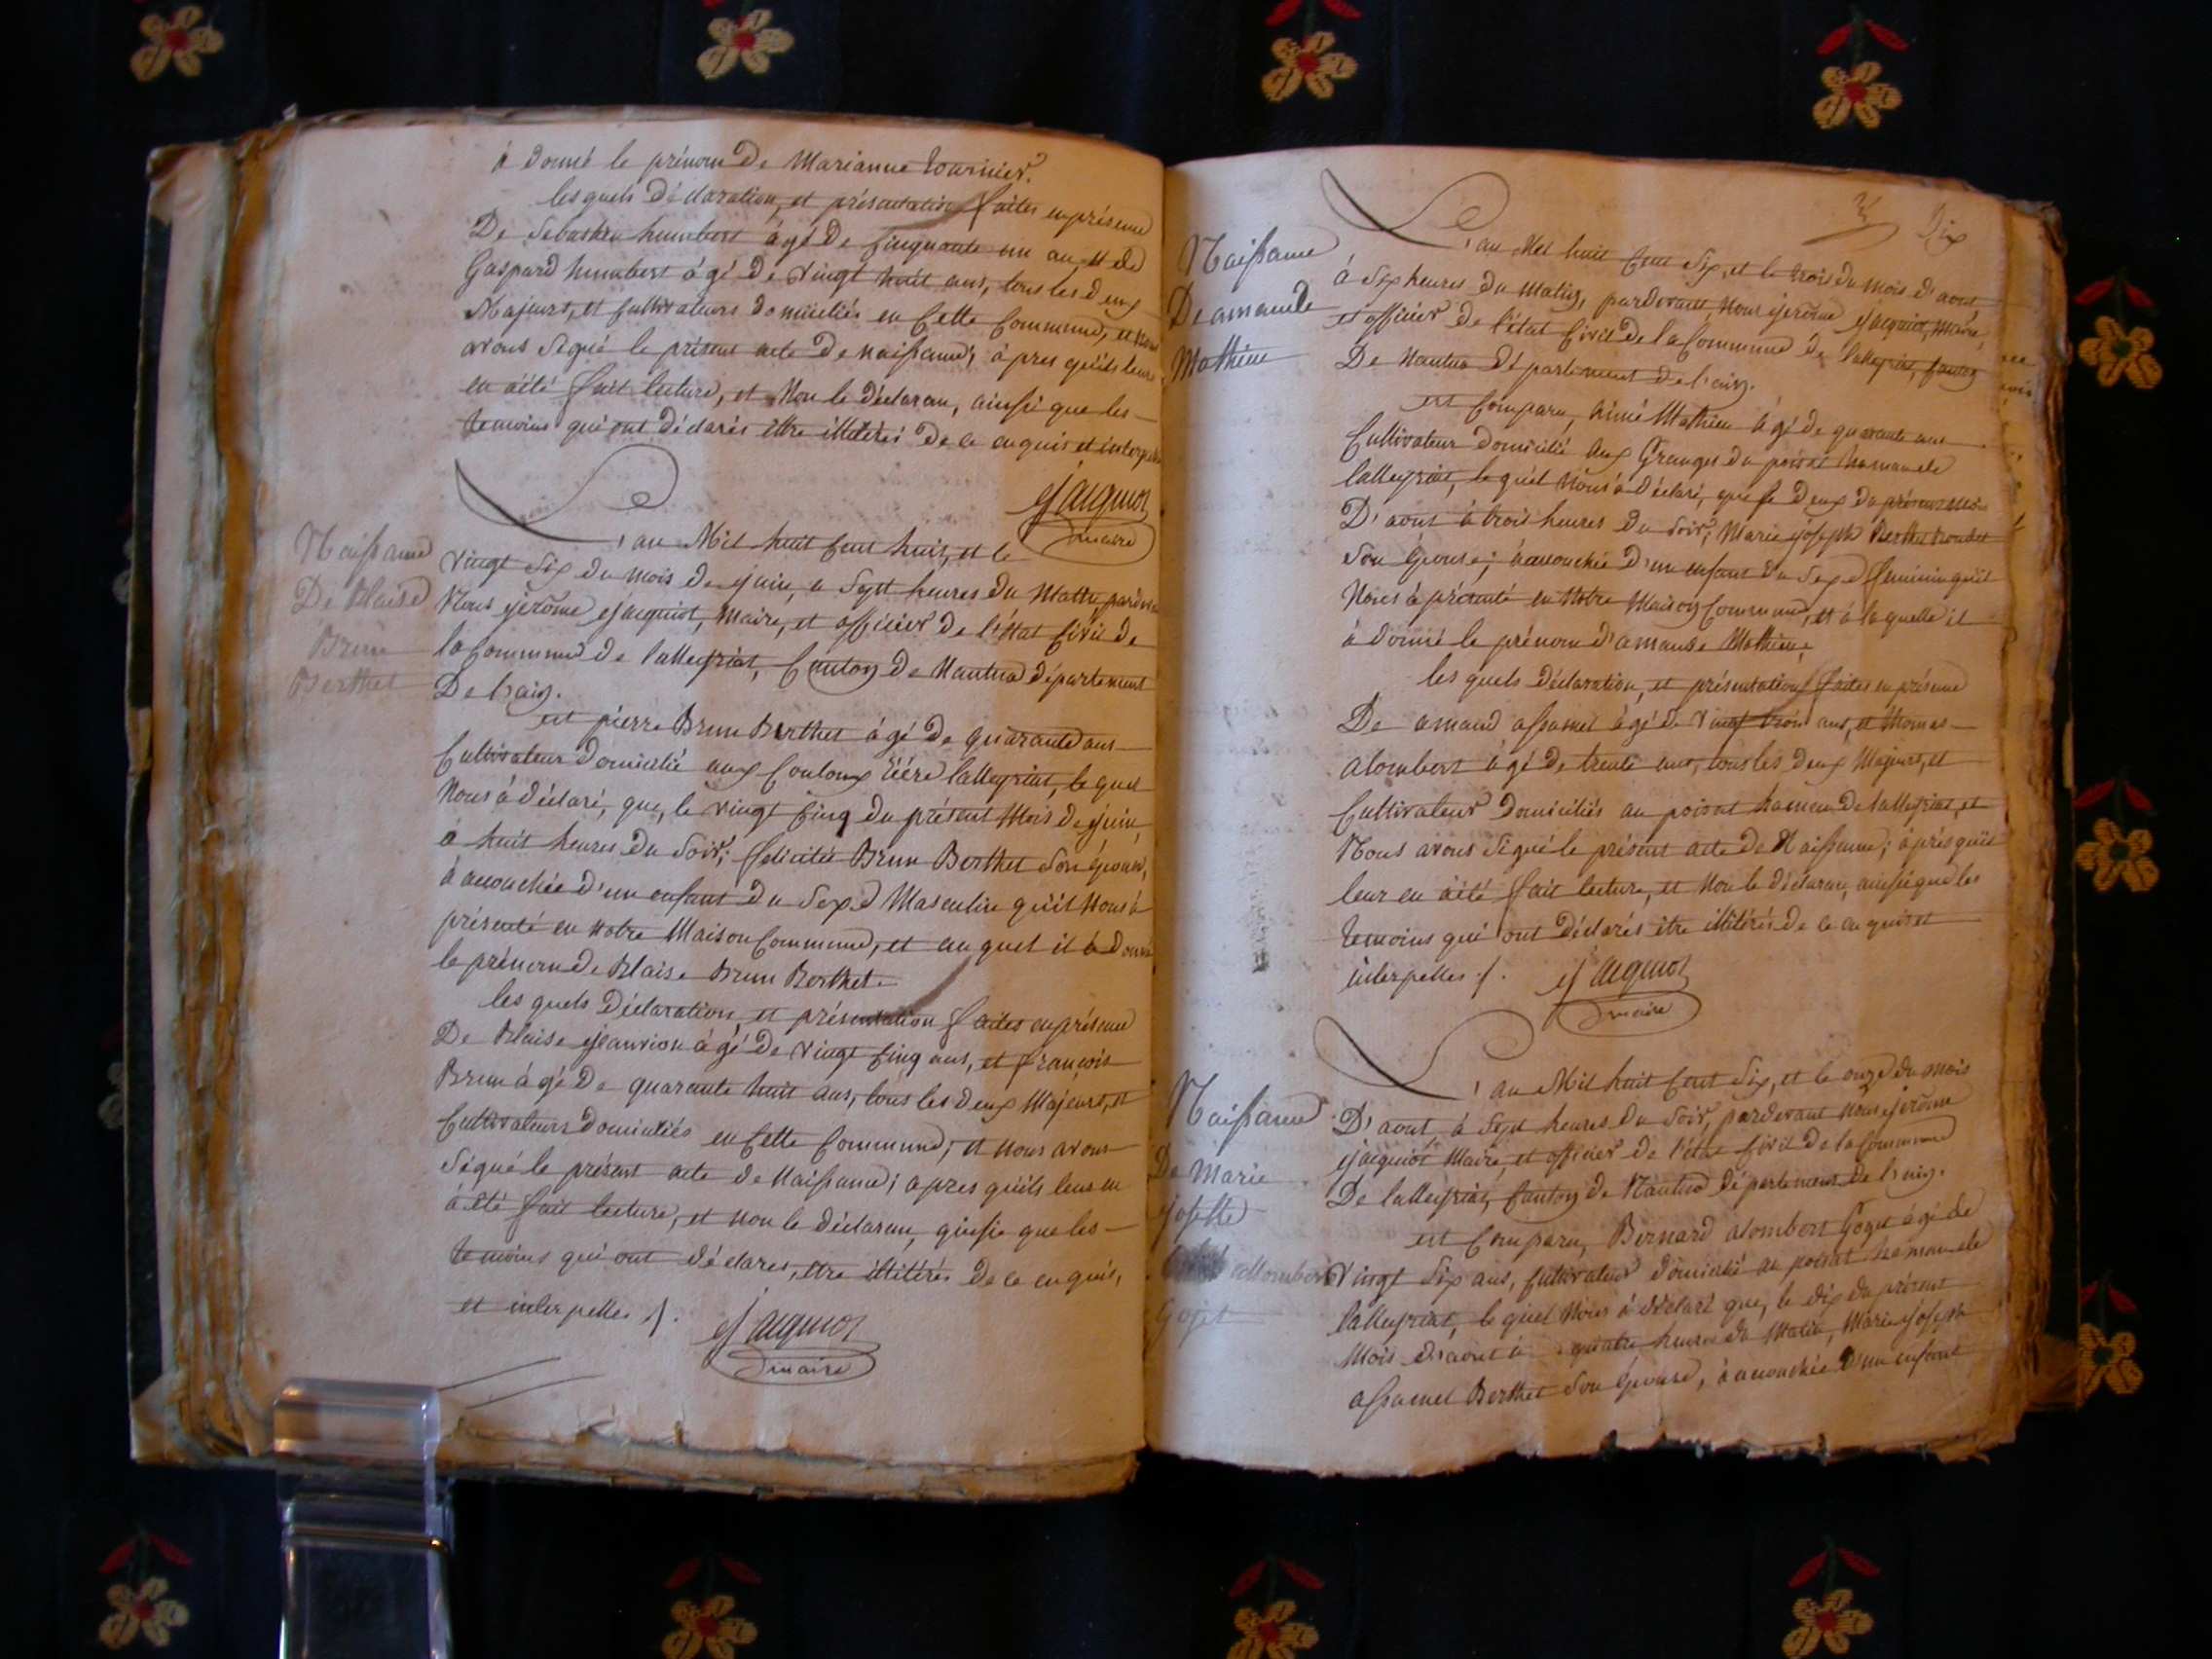 à donné le prénom de Marianne tournier.
les quels déclaration, et présentation faites en présence
De Sebastien humbert âgé de cinquante un an, et de
Gaspard humbert âgé de vingt huit ans, tous les deux
Majeurs, et Cultivateurs domiciliés en Cette Commune, et nous
avons signé le présent acte de naissance; après qu'ils leurs
en à été fait lecture, et Non le déclarant, ainsie que les
temoins qui ont déclarés être illitérés de ce enquis et interpellés
ejacquiot
maire
Naissance
De Blaise
Brun
Berthet
l'an Mil huit Cent huit, et le
vingt six du mois de juin, a Sept heures du Matin, pardevant
Nous jerôme ejacquiot, Maire, et officier de l'état Civil de
la Commune de lalleyriat, Canton de Nantua département
De l'ain.
est pierre Brun Berthet âgé de quarante ans
Cultivateur domicilié aux Couloux lalleyriat, le quel
Nous à déclaré, que, le vingt Cinq du présent Mois de juin,
à huit heures du Soir; félicitée Brun Berthet Son épouse,
à accouchée d'un enfant du Sexe Masculin qu'il Nous à
présenté en Notre Maison Commune, et au quel il à donné
le prénom de Blaise Brun Berthet.
les quels Déclaration, et présentation faites en présence
De Blaise ejeanvion âgé de vingt Cinq ans, et françois
Brun âgé de quarante huit ans, tous les deux Majeurs, et
Cultivateurs domiciliés en Cette Commune; et nous avons
Signé le présent acte de Naissance; apres qu'ils leur en
à été fait lecture, et non le déclarant, ainsie que les
temoins qui ont déclarés, être illitérés de ce enquis,
et interpellés ./.
ejacquiot
maire
Dix
Naissance
De amande
Mathieu
l'an Mil huit Cent Six, et le trois du mois d'aout
à Sex heures du Matin, pardevant Nous jerôme ejacquiot, Maire,
et officier de l'état Civil de la Commune de lalleyriat, Canton
De Nantua département de l'ain.
est Comparu, aimé Mathieu âgé de quarante ans
Cultivateur domicilié aux Granges du poizat hamau de
lalleyriat, le quel Nous à déclaré, que le deux du présent mois
D'aout à trois heures du Soir, Marie ejoseph Berthet
Son épouse; à accouchée d'un enfant du Sexe féminin qu'il
Nous à présenté en Notre Maison Commune, et à la quelle il
à donné le prénom d'amande Mathieu.
les quels déclaration, et présentation faites en présence
De amand assamet âgé de vingt trois ans, et thomas
alombert âgé de trente ans, tous les deux Majeurs, et
Cultivateur Domiciliés au poizat hameau de lalleyriat, et
Nous avons Signé le présent acte de Naissance; après qu'il
leur en à été fait lecture, et Non le déclarant, ainsie que les
temoins qui ont déclarés être illitérés de ce enquis et
interpellés ./.
ejacquiot
maire
Naissance
De Marie
ejosephte
allombert
Gojet
l'an Mil huit Cent Six, et le onze du mois
D'aout, à Sept heures du Soir, pardevant Nous jerôme
ejacquiot Maire, et officier de l'état Civil de la Commune
De lalleyriat, Canton de Nantua département de l'ain.
est Comparu, Bernard alombert Goget âgé de
vingt Six ans, Cultivateur domicilié au poizat hamau de
lalleyriat, le quel Nous à déclaré que, le dix du présent
Mois d'aout à quatre heures du Matin, Marie ejoseph
assamet Berthet Son épouse, à accouchée d'un enfant